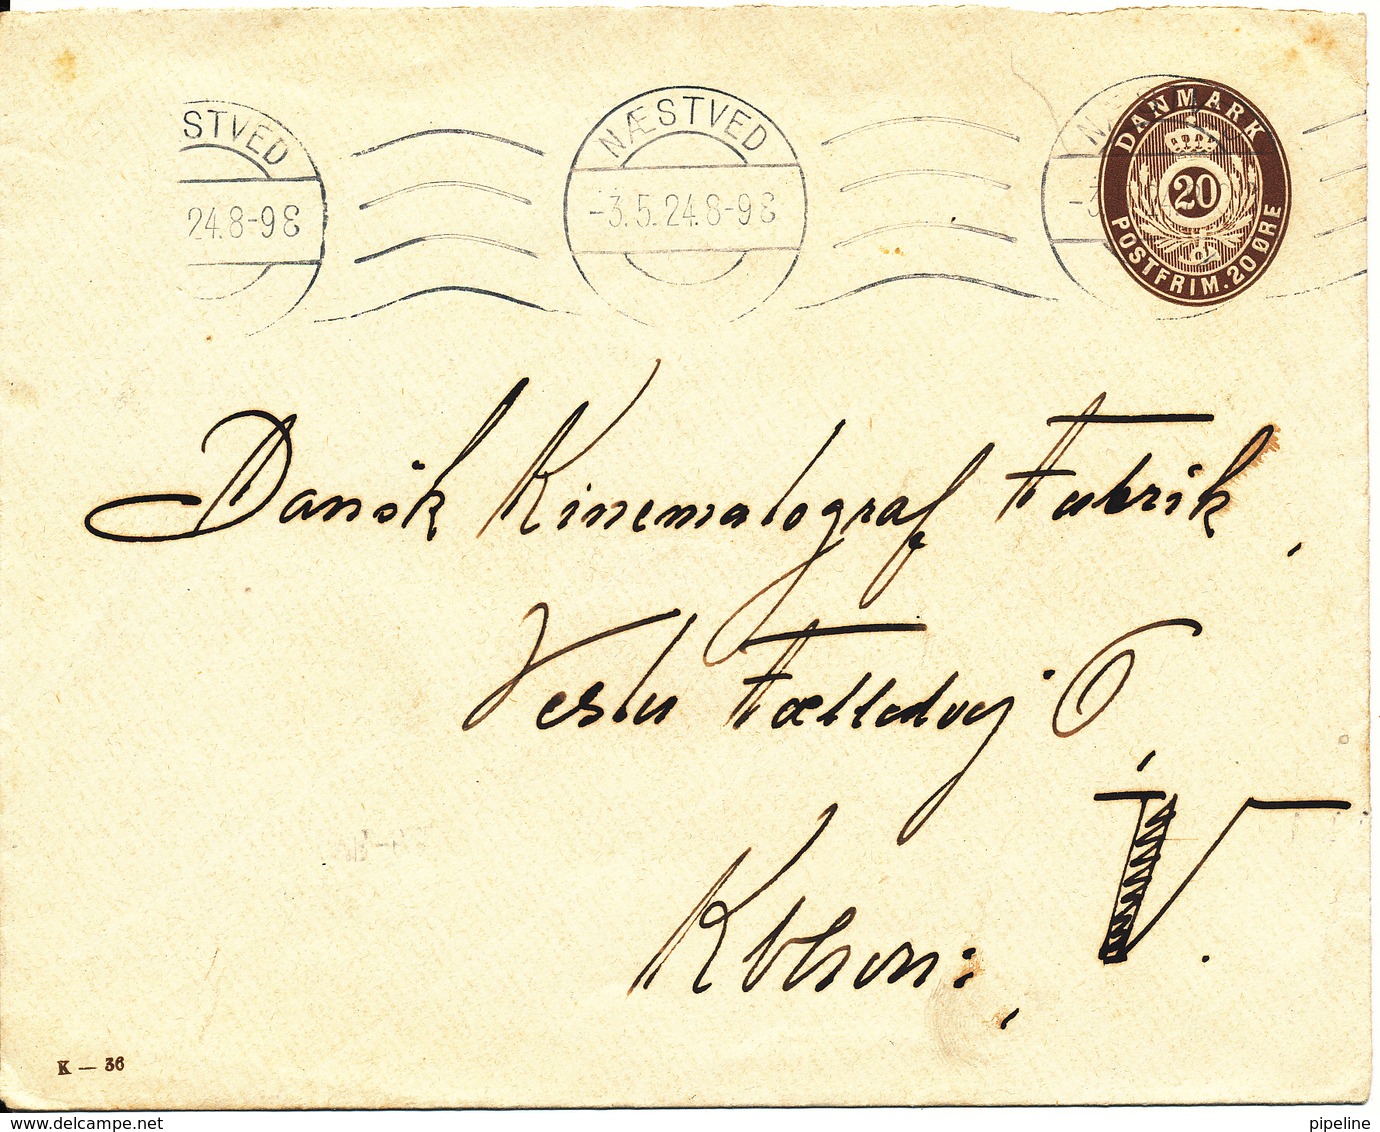 STVED
24.8-9 E
NÆSTVED
-3.5.24.8-9 E
DANMARK
20
POSTFRIM. 20 ØRE
Dansk Kinematograf Fabrik,
Vester Fælledvej 6,
Kbhvn:, V.
K — 36
www.delcampe.net
pipeline